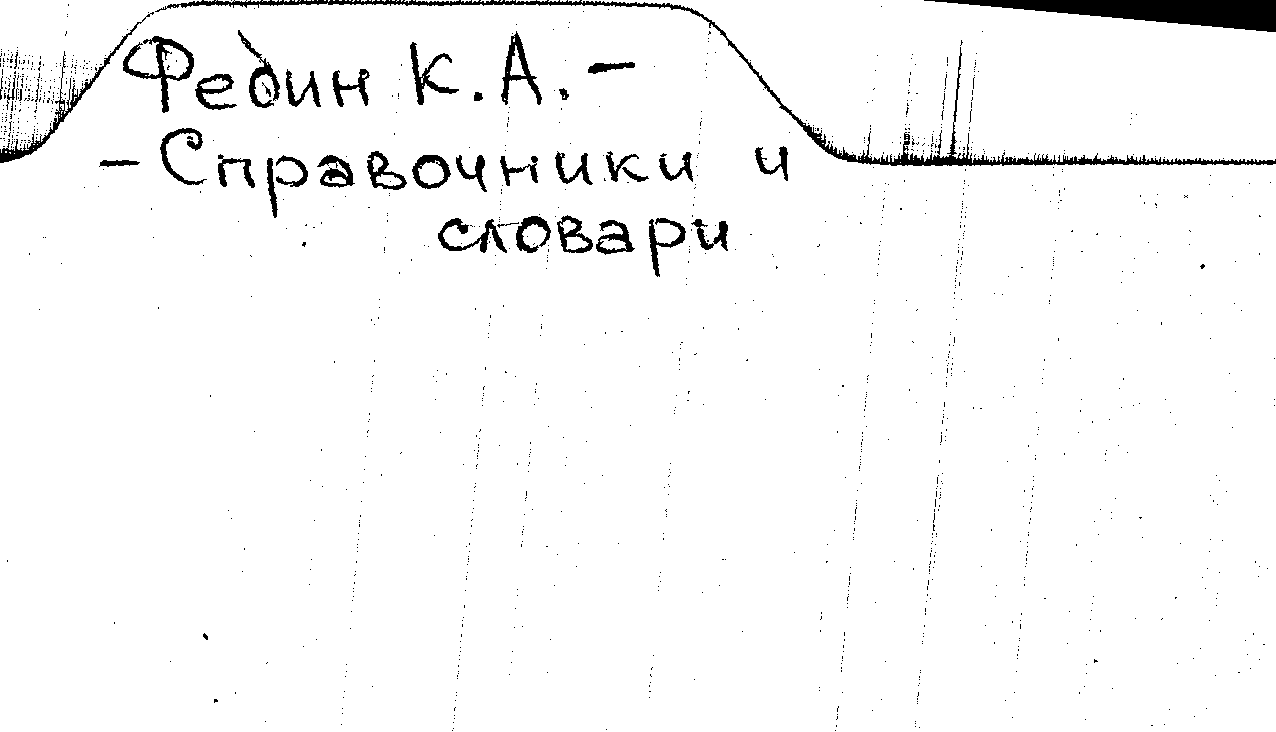 Федин К. А. –
– Справочники и
словари